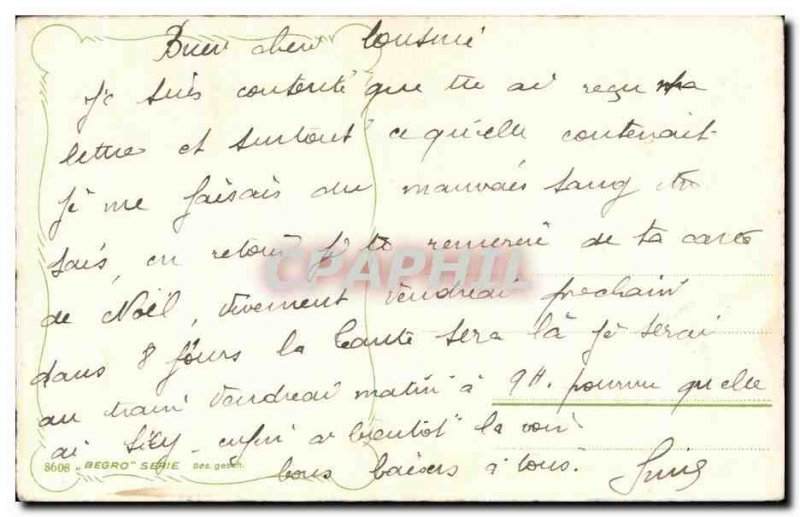 Bien cher Cousine
Je suis contente que tu ai reçu ma
lettre et surtout ce qu'elle contenait
Je me faisais du mauvais sang tu
sais, en retour je te remercie de ta carte
de Noël, vivement Vendredi prochain
dans 8 jours la Tante sera là je serai
au train Vendredi matin à 9H. pourvu qu'elle
ai enfin a bientot la voir
8608 „BEGRO" SERIE Ges. gesch.
bons baisers à tous.
CPAPHIL